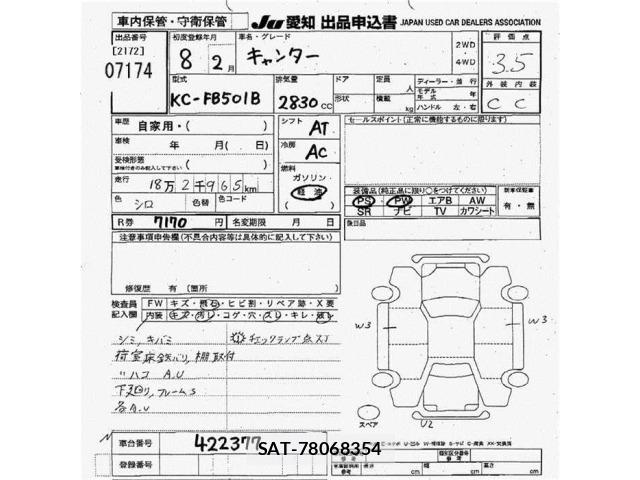 車内保管・守衛保管 JU 愛知 出品申込書 JAPAN USED CAR DEALERS ASSOCIATION
出品番号 初度登録年月 車名・グレード 2WD 評価点
[2172] 8 2月 キャンター 4WD 3.5
07174 型式 排気量 ドア 定員 人 ディーラー・並行 外装 内装
KC-FB501B 2830cc 形状 積載 kg モデル年式 年 C C
ハンドル 左・右
車歴 自家用・( ) シフト AT セールスポイント(正常に機能するものに限ります)
車検 年 月(日) 冷房 AC
受検形態 ( ) 燃料
車検付きのみ記入して下さい ガソリン
走行 18万2千965km 軽油 装備品(純正品に限り○をつけてください) 新車保証書
色 シロ 色替 色コード PS PW エアB AW 有・無
SR ナビ TV カワシート
R券 7170円 名変期限 月 日 後日品
注意事項申告欄(不具合内容等は具体的に記入して下さい)
修復歴 有 (箇所
検査員 FW キズ・飛石・ヒビ割・リペア跡・X要
記入欄 内装 キズ・汚レ・コゲ・穴・スレ・キレ・
シミ,キバミ チェックランプ点灯
荷室床鉄バリ,棚取付
〃ハコ A.U
下廻り,フレームS
各A.U
W3 W3
スペア U2
車台番号 422377
SAT-78068354
登録番号 cm cm cm